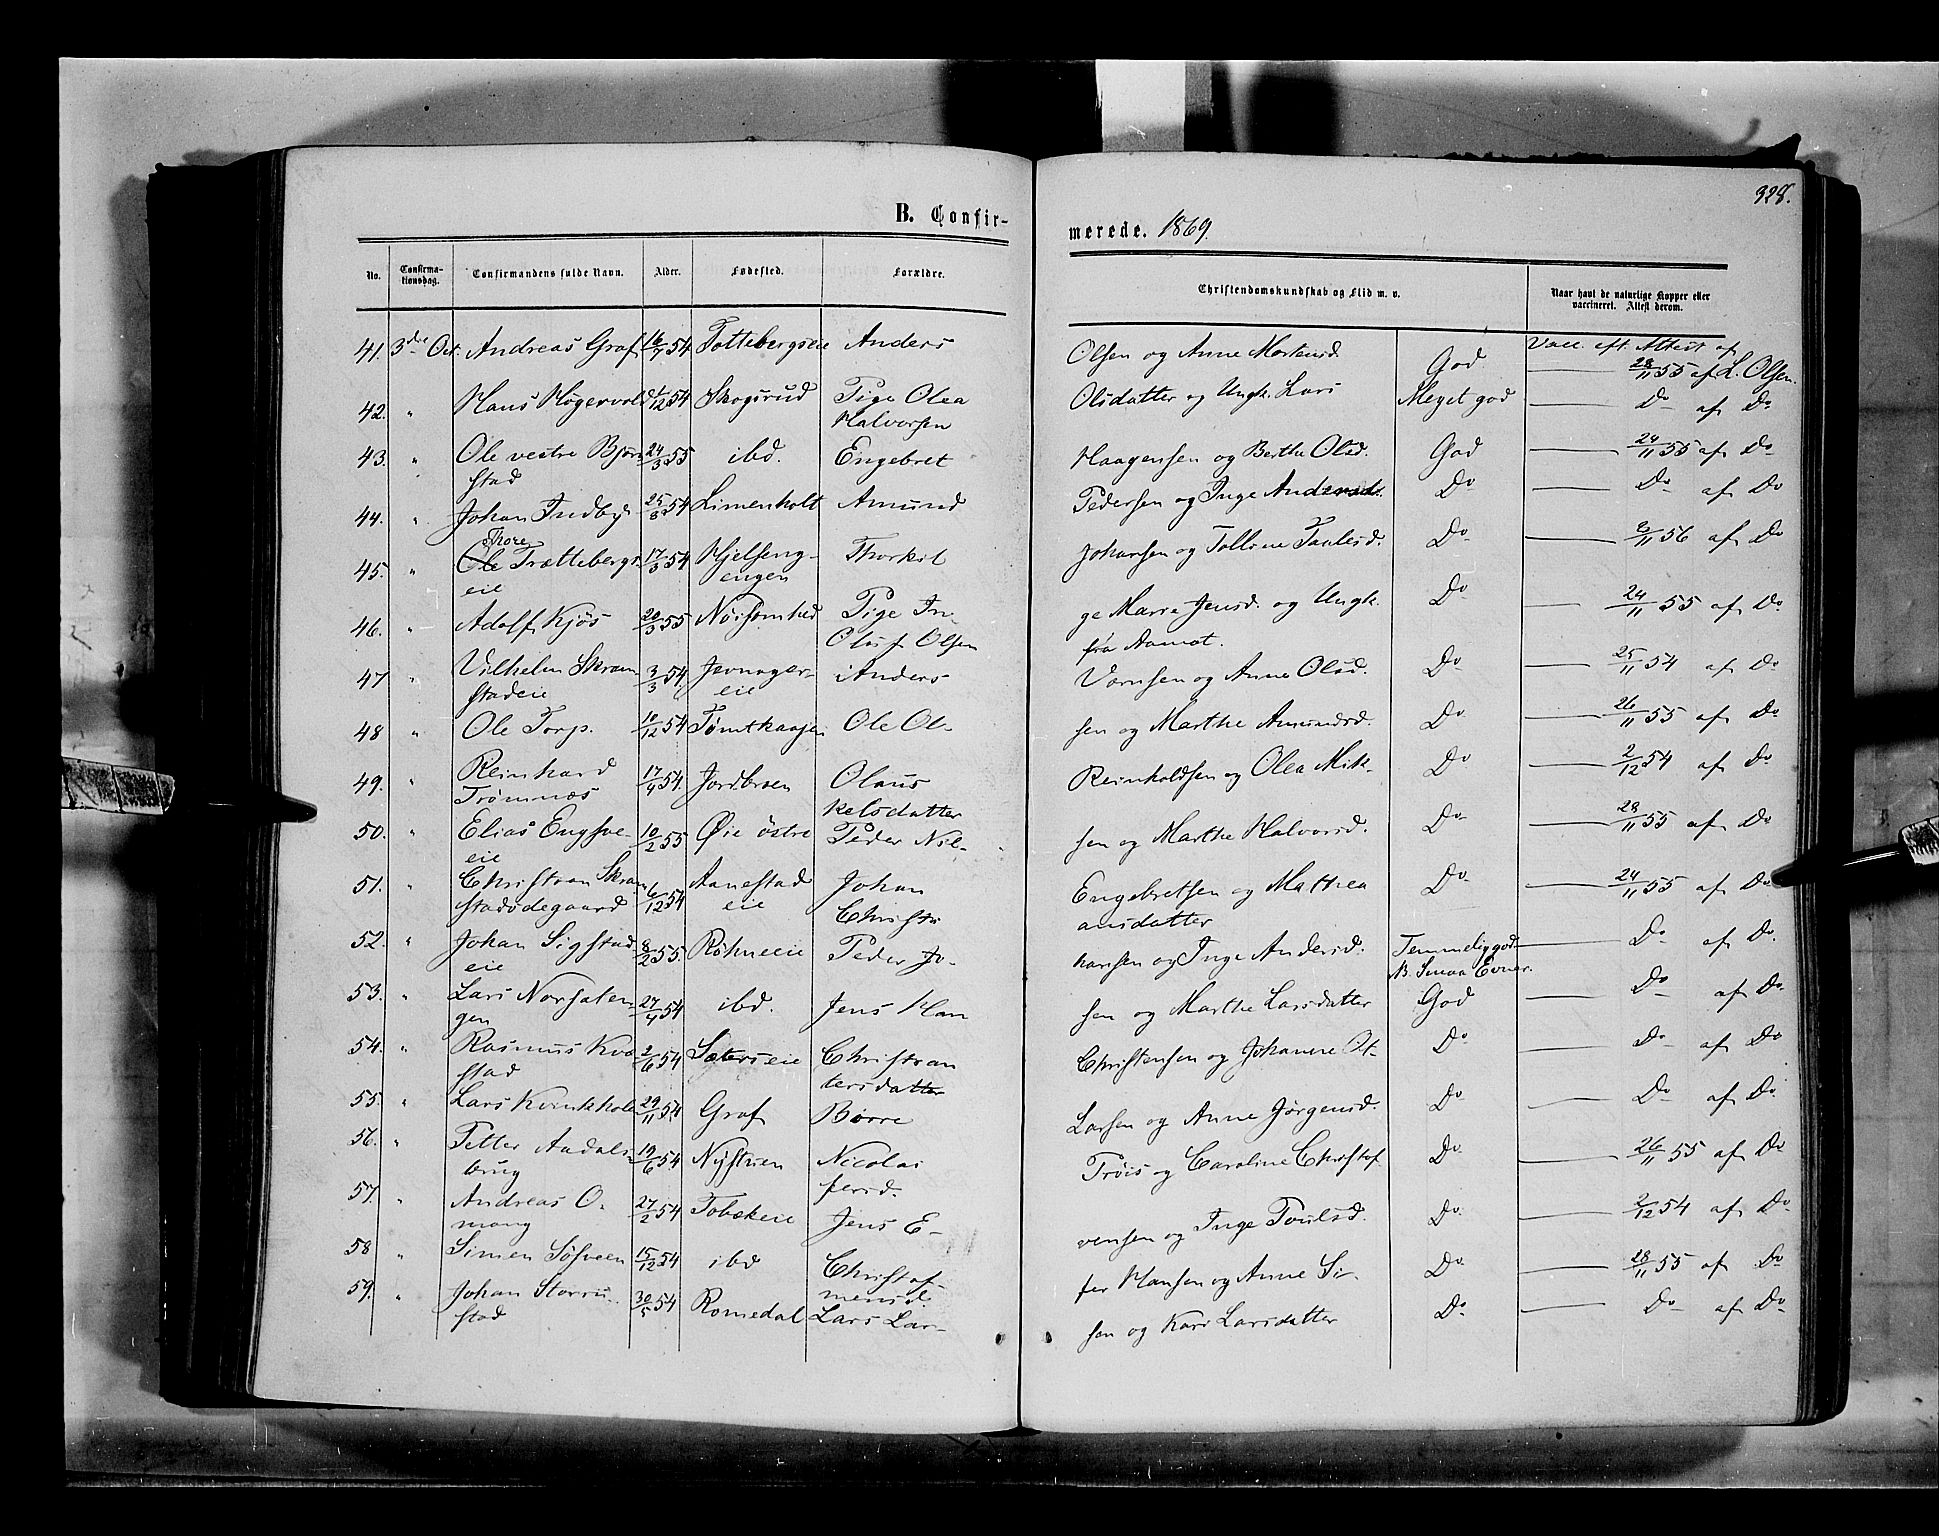 328.
B. Confir-
merede. 1869.
No.
Confirma-
tionsdag.
Confirmandens fulde Navn.
Alder.
Fødested.
Forældre.
Christendomskundskab og Flid m. v.
Naar havt de naturlige Kopper eller
vaccineret. Attest derom.
Vacc. eft. Attest af
41. 3die Oct. Andreas Graf 16/7 54 Tottebergseie Anders Olsen og Anne Mortensd. God — 28/11 55 af L. Olsen.
42. " Hans Høgervold 1/12 54 Skogsrud Pige Olea Olsdatter og Ungk. Lars Meget god — Do af Do
Halvorsen
43. " Ole vestre Bjørn 24/3 55 ibd. Engebret Haagensen og Berthe Olsd. God — 24/11 55 af Do
stad
44. " Johan Indbyr 25/8 54 Limenholt Amund Pedersen og Inge Andersd. Do — Do af Do
Thore
45. " Ole Trættebergs 17/3 54 Hjelseng- Thorkil Johansen og Talline Paulsd. Do — 2/11 56 af Do
eie engen
46. " Adolf Kjøs 20/3 55 Nøisomhed Pige In- ge Marie Jensd. og Ungk. Do — 24/11 55 af Do
Oluf Olsen fra Aamot.
47 " Vilhelm Skram 3/3 54 Jevnager- Anders Vornsen og Anne Olsd. Do — 25/11 54 af Do
stadeie eie
48 " Ole Torp. 10/12 54 Tømthaugen Ole Ol- sen og Marthe Amundsd. Do — 26/11 55 af Do
49. " Reinhard 17/4 54. Jordbroen Olaus Reinholdsen og Olea Mik- Do — 2/12 54 af Do
Trømnæs kelsdatter
50. " Elias Engsve- 10/2 55 Øie østre Peder Nil- sen og Marthe Halvorsd. Do — 28/11 55 af Do
eie
51. " Christian Skram 6/12 54 Aanestad Johan Engebretsen og Mathea Do — 24/11 55 af Do
stadødegaard eie Christi ansdatter
52. " Johan Sigstad 8/2 55. Røhneeie Peder Jo- hansen og Inge Andersd. Temmelig god — Do af Do.
eie B. Smaa Evner.
53. " Lars Norsaten 27/4 54 ibd. Jens Han sen og Marthe Larsdatter God — Do af Do.
gen
54. " Rasmus Kva 2/6 54 Sæterseie Christian Christensen og Johanne Pet- Do — Do af Do
stad tersdatter
55. " Lars Kvinkhola 29/11 54. Graf Børre Larsen og Anne Jørgensd. Do — Do af Do.
56. " Petter Aadals 19/6 54 Nystuen Nicolai Trøis og Caroline Christof Do — 26/11 55 af Do
brug fersd.
57. " Andreas O- 27/2 54 Tobekeie Jens E- vensen og Inge Poulsd. Do — 2/12 54 af Do
mang
58 " Simen Søsveen 15/12 54 ibd Christof- fer Hansen og Anne Si- Do — 28/11 55 af Do
mensd.
59. " Johan Storru- 30/5 54 Romedal Lars Lar- sen og Kari Larsdatter Do — Do af Do
stad